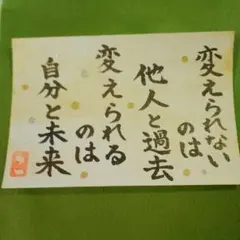 変えられない
のは
他人と過去
変えられる
のは
自分と未来